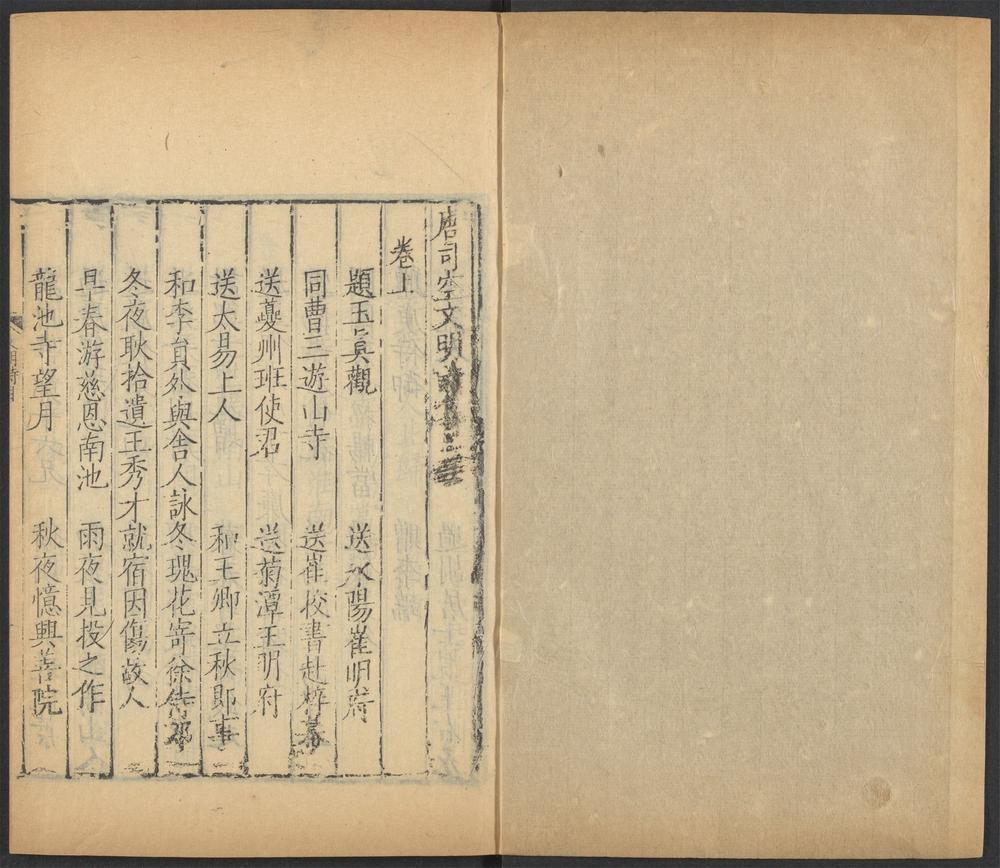 唐司空文明詩集
卷上
題玉眞觀 送永陽崔明府
同曹三遊山寺 送崔挍書赴梓幕
送夔州班使君 送菊潭王明府
送太易上人 和王卿立秋即事
和李員外與舍人詠冬瑰花寄徐侍郎
冬夜耿拾遺王秀才就宿因傷故人
早春游慈恩南池 雨夜見投之作
龍池寺望月 秋夜憶興善院